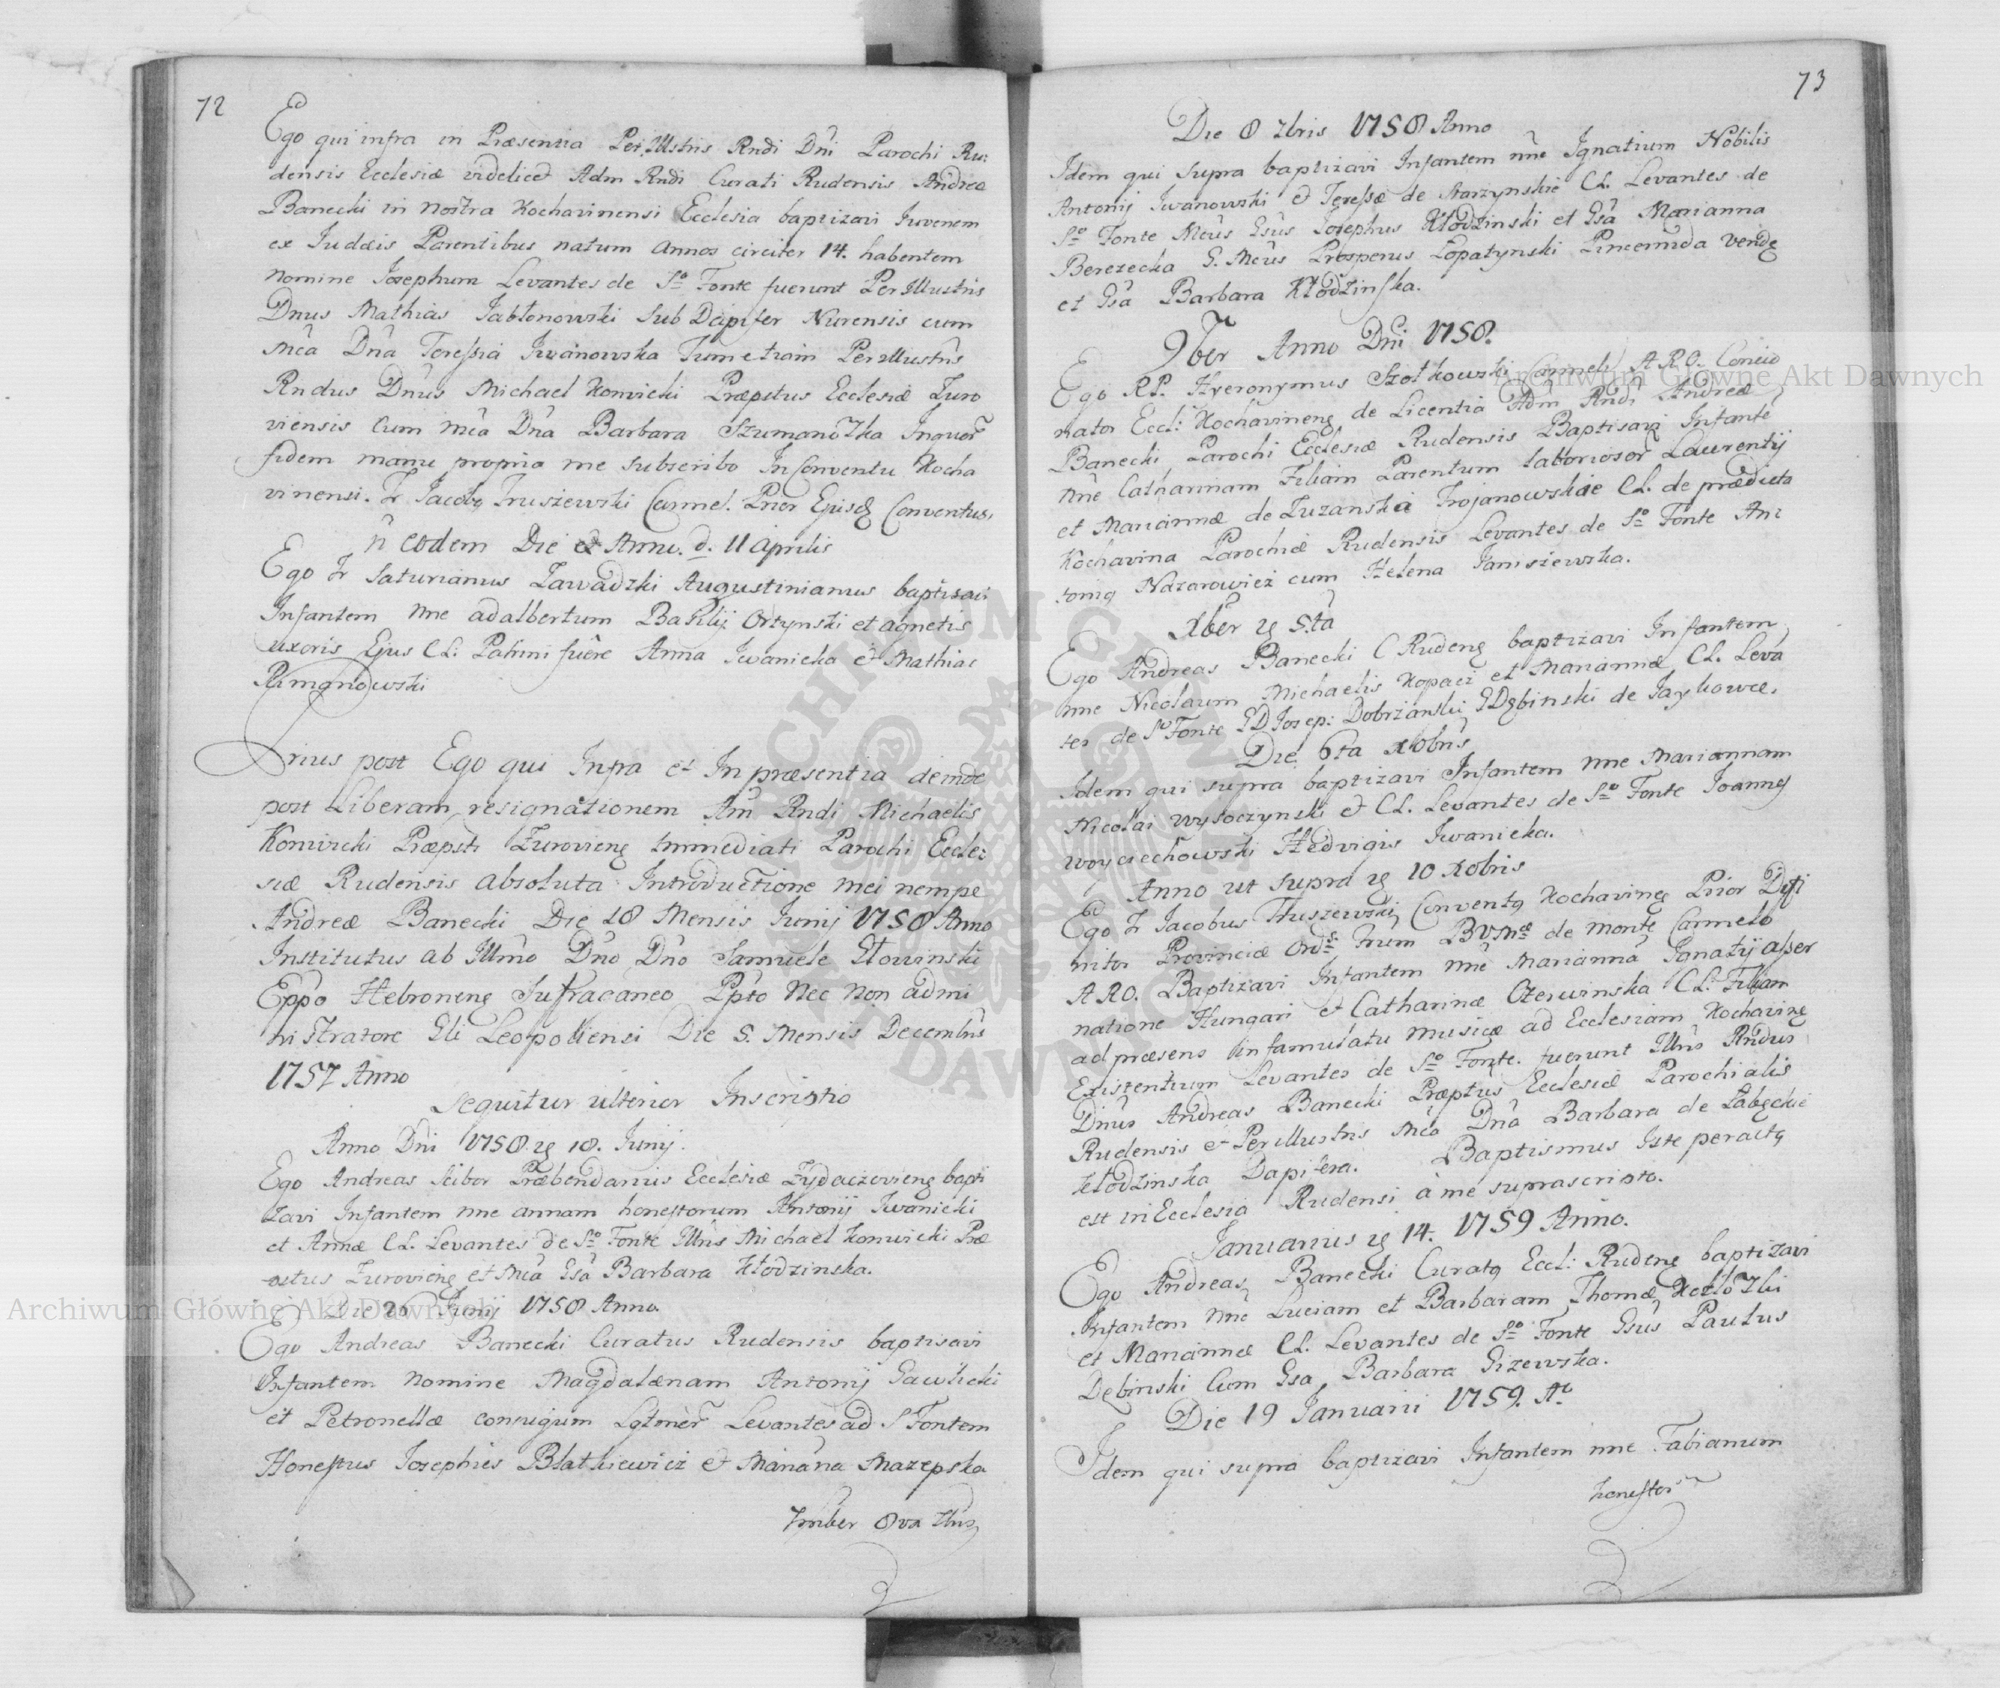 72
Ego qui infra in Præsentia Perillustris Rndi Dni Parochi Ru:
densis Ecclesiæ videlicet Adm Rndi Curati Rudensis Andreæ
Banecki in nostra Kochavinensi Ecclesia baptizavi Iuvenem
ex Iudæis Parentibus natum annos circiter 14. habentem
nomine Iosephum Levantes de So Fonte fuerunt Per Illustris
Dnus Mathias Iabłonowski Sub Dapifer Nurensis cum
Mca Dna Teressia Iwanowska Tum etiam Perillustris
Rndus Dnus Michael Konicki Præpstus Ecclesiæ Zuro
viensis Cum Mca Dna Barbara Szumanozka Inquor
fidem manu propria me subscribo In Conventu Kocha
vinensi. Fr Iacobq Truszewski Carmel. Prior Ejusdq Conventus.
eodem Die et Anno. d. 11 Aprilis
Ego Fr Saturianus Zawadzki Augustinianus baptisavi
Infantem nne adalbertum Basilij Ortynski et agnetis
uxoris Ejus CL: Patrini fuere Anna Iwanicka et Mathias
Rimanowski
Prius post Ego qui Infra et In præsentia deinde
post Liberam resignationem Am Rndi Michaelis
Konwicki Præpsti Zuroviens Immediati Parochi Eccle:
siæ Rudensis absoluta Introductione mei nempe
Andreæ Banecki Die 18 Mensis Iunij 1758 Anno
Institutus ab Illmo Dno Dno Samuele Głowinski
Eppo Hebronens Sufraganeo Ppto Nec Non admi
nistratore Gli Leopoliensi Die 5. Mensis Decembris
1757 Anno
Sequitur ulterior Inscriptio
Anno Dni 1758 18. Iunij.
Ego Andreas Scibor Præbendarius Ecclesiæ Zydaczoviens bapti
zavi Infantem nne annam honestorum Antonij Iwanicki
et Annæ CL. Levantes de So Fonte Illris Michael Konwicki Præ
ostus Zuroviens et Mca Gsa Barbara Kłodzinska.
Die 26 Iunij 1758 Anno.
Ego Andreas Banecki Curatus Rudensis baptisavi
Infantem nomine Magdalænam Antonij Gawlicki
et Petronellæ conjugum Lgtmer Levantes ad S Fontem
Honestus Iosephus Błatkiewicz et Marianna Mazepska
73
Die 8 Anno 1758
Idem qui supra baptizavi Infantem nne Ignatium Nobilis
Antonij Iwanowski et Teressæ de Starzynskie CL. Levantes de
So Fonte Mcus Gsus Iosephus Kłodzinski et Gsa Marianna
Berezecka G. Mcus Prosperus Łopatynski Pincernida Vend
et Gsa Barbara Kłodzinska.
9ber Anno Dni 1758.
Ego RP. Hyeronymus Szołkowski Carmel: A.R.O. Concio
nator Eccl: Kochavinens de Licentia Adm Rndi Andreæ
Banecki Parochi Ecclesiæ Rudensis Baptisavi Infante
nne Catharinam Filiam Parentum laboriosor Laurentij
et Mariannæ de Luzanskie Trojanowskie CL. de prædicta
Kochavina Parochiæ Rudensis Levantes de So Fonte An:
tonig Nazarowicz cum Helena Janiszewska.
Xber 5ta
Ego Andreas Banecki C Rudens baptizavi Infantem
nne Nicolaum Michaelis Kopacz et Mariannæ CL. Leva
tes de So Fonte GD Iosep: Dobrzanski GDębinski de Iaykowce.
Die 6ta Xbris
Idem qui supra baptizavi Infantem nne Mariannam
Nicolai Wysoczynski et CL. Levantes de So Fonte Ioannes
Woyciechowski Hedvigis Iwanicka.
Anno ut supra 10 Xbris
Ego Fr Iacobus Truszewski Conventq Kochavinens Prior Difi
nitor Provinciæ Ord: Frum BVMæ de monte Carmelo
A.R.O. Baptizavi Infantem nne Marianna Ignatij Asser
natione Hungari et Catharinæ Czerwinska CL. Filiam
ad præsens in famulatu musicæ ad Ecclesiam Kochavins
Existentium Levantes de So Fonte. fuerunt Illris Rndus
Dnus Andreas Banecki Præptus Ecclesiæ Parochialis
Rudensis et Perillustris Mca Dna Barbara de Łabęckie
Kłodzinska Dapifera. Baptismus Iste peractq
est in Ecclesia Rudensi à me suprascripto.
Ianuarius 14. 1759 Anno.
Ego Andreas Banecki Curatq Eccl: Rudens baptizavi
Infantem nne Luciam et Barbaram Thomæ Kozłozki
et Mariannæ CL. Levantes de So Fonte Gsus Paulus
Dębinski Cum Gsa Barbara Gizewska.
Die 19 Ianuarii 1759. Ao
Idem qui supra baptizavi Infantem nne Fabianum
honestor
Archiwum Główne Akt Dawnych
Archiwum Główne Akt Dawnych